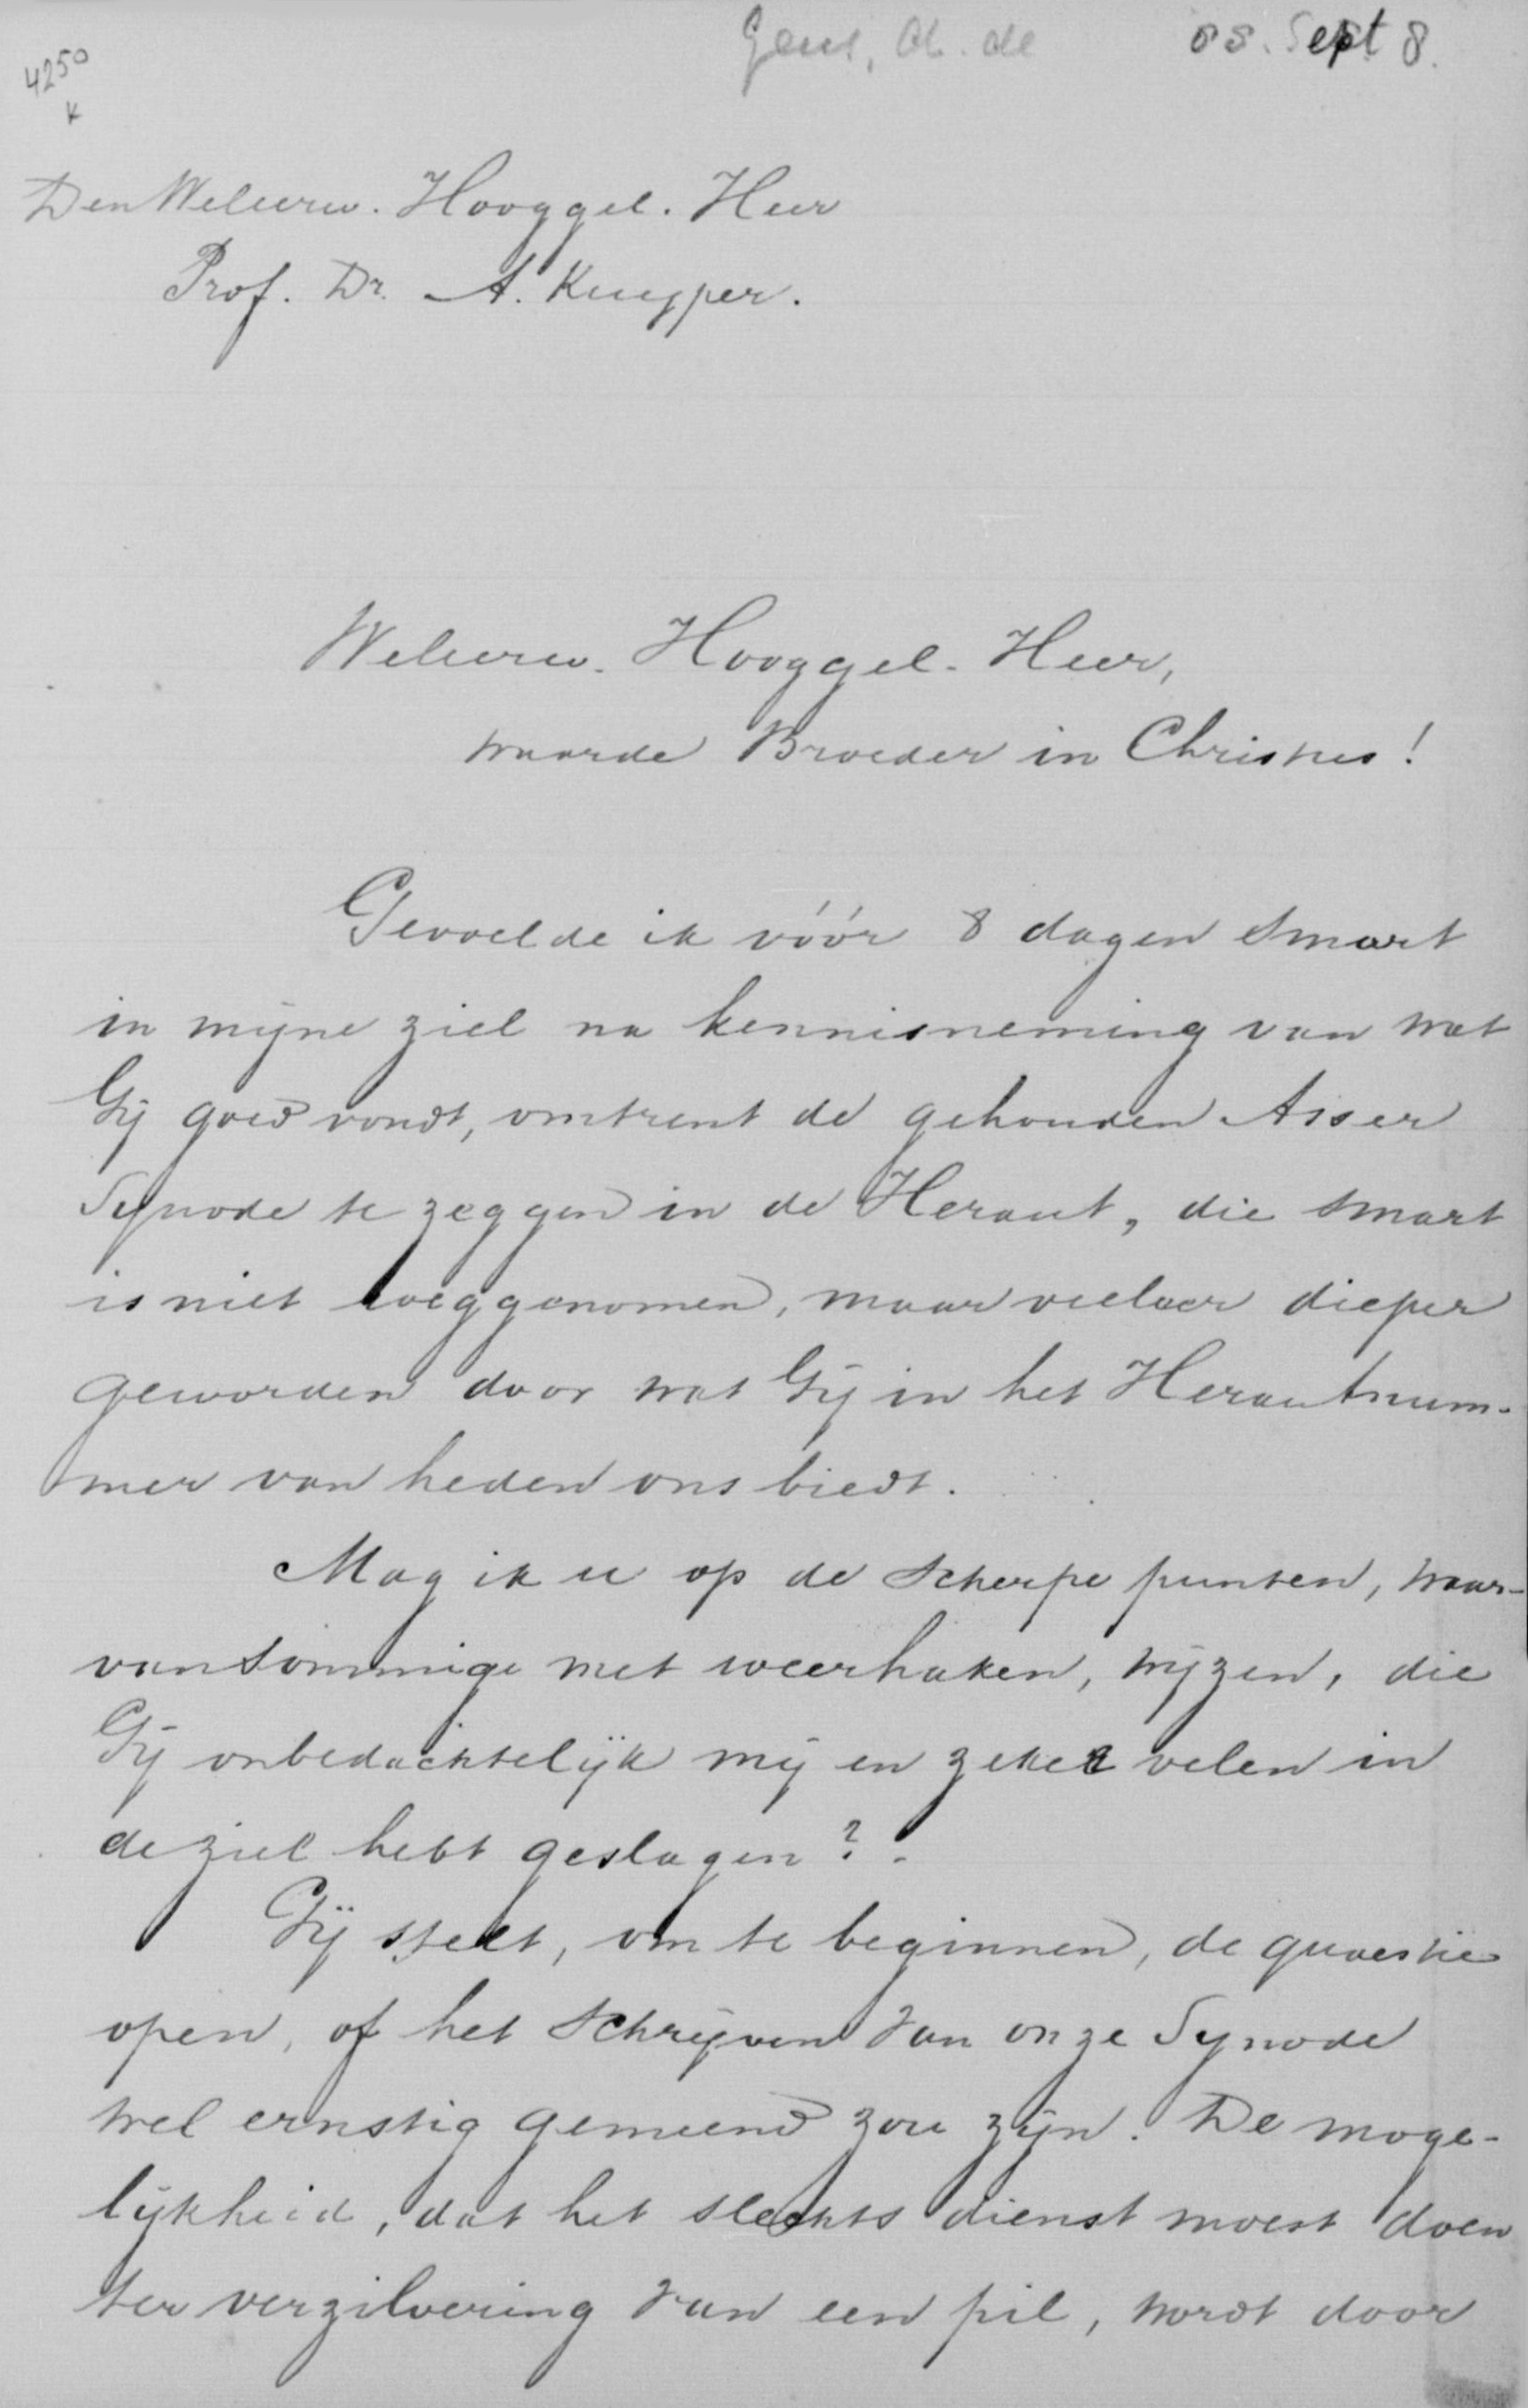 Geus, Ch. de 88. Sept 8.
4250
k
Den Weleerw. Hooggel. Heer
Prof. Dr. A. Kuyper.
Weleerw. Hooggel. Heer,
waarde Broeder in Christus!
Gevoelde ik vóór 8 dagen smart
in mijne ziel na kennisneming van wat
Gij goed vondt, omtrent de gehouden Asser
Synode te zeggen in de Heraut, die smart
is niet weggenomen, maar veeleer dieper
geworden door wat Gij in het Herautnum-
mer van heden ons biedt.
Mag ik u op de scherpe punten, waar-
van sommige met weerhaken, wijzen, die
Gij onbedachtelijk mij en zeker velen in
de ziel hebt geslagen?
Gij stelt, om te beginnen, de quaestie
open, of het schrijven van onze Synode
wel ernstig gemeend zou zijn. De moge-
lijkheid, dat het slechts dienst moest doen
ter verzilvering van een pil, wordt door